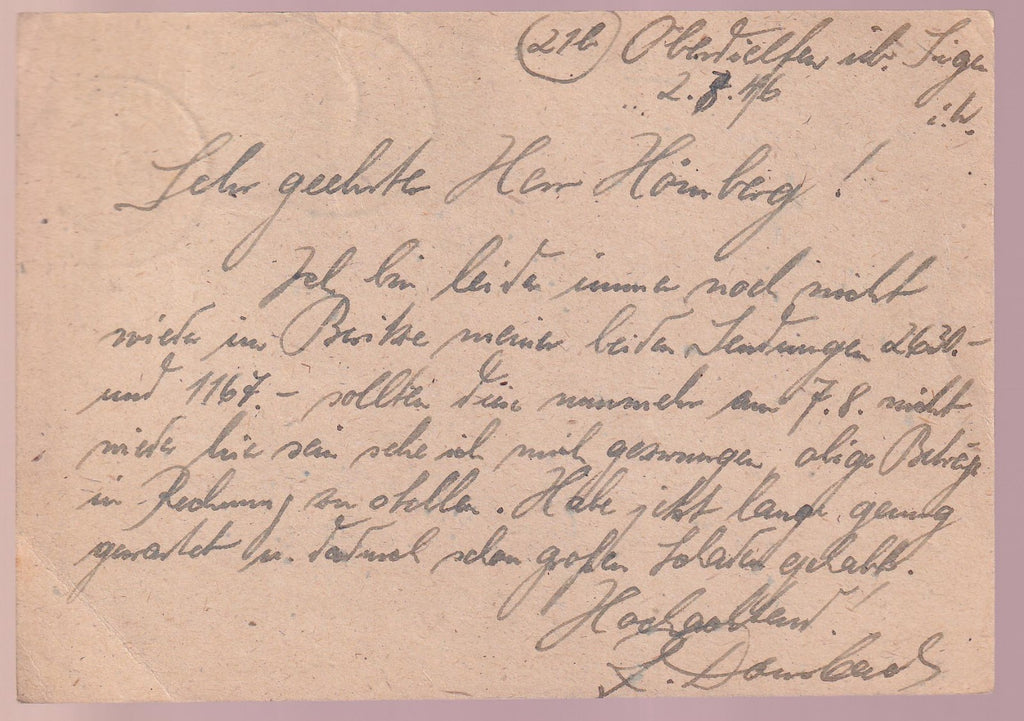 (21b) Oberdielfen üb. Siegen
2.8.46
i.W.
Sehr geehrter Herr Hömberg!
Ich bin leider immer noch nicht
wieder im Besitze meiner beiden Sendungen 2630.-
und 1167.- sollten diese nunmehr am 7.8. nicht
wieder hier sein sehe ich mich gezwungen, obige Beträge
in Rechnung zu stellen. Habe jetzt lange genug
gewartet u. dadurch schon großen Schaden gehabt.
Hochachtend!